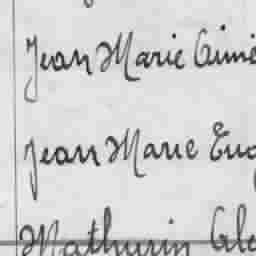 Jean Marie Aimé
Jean Marie Eug
Mathurin Ale